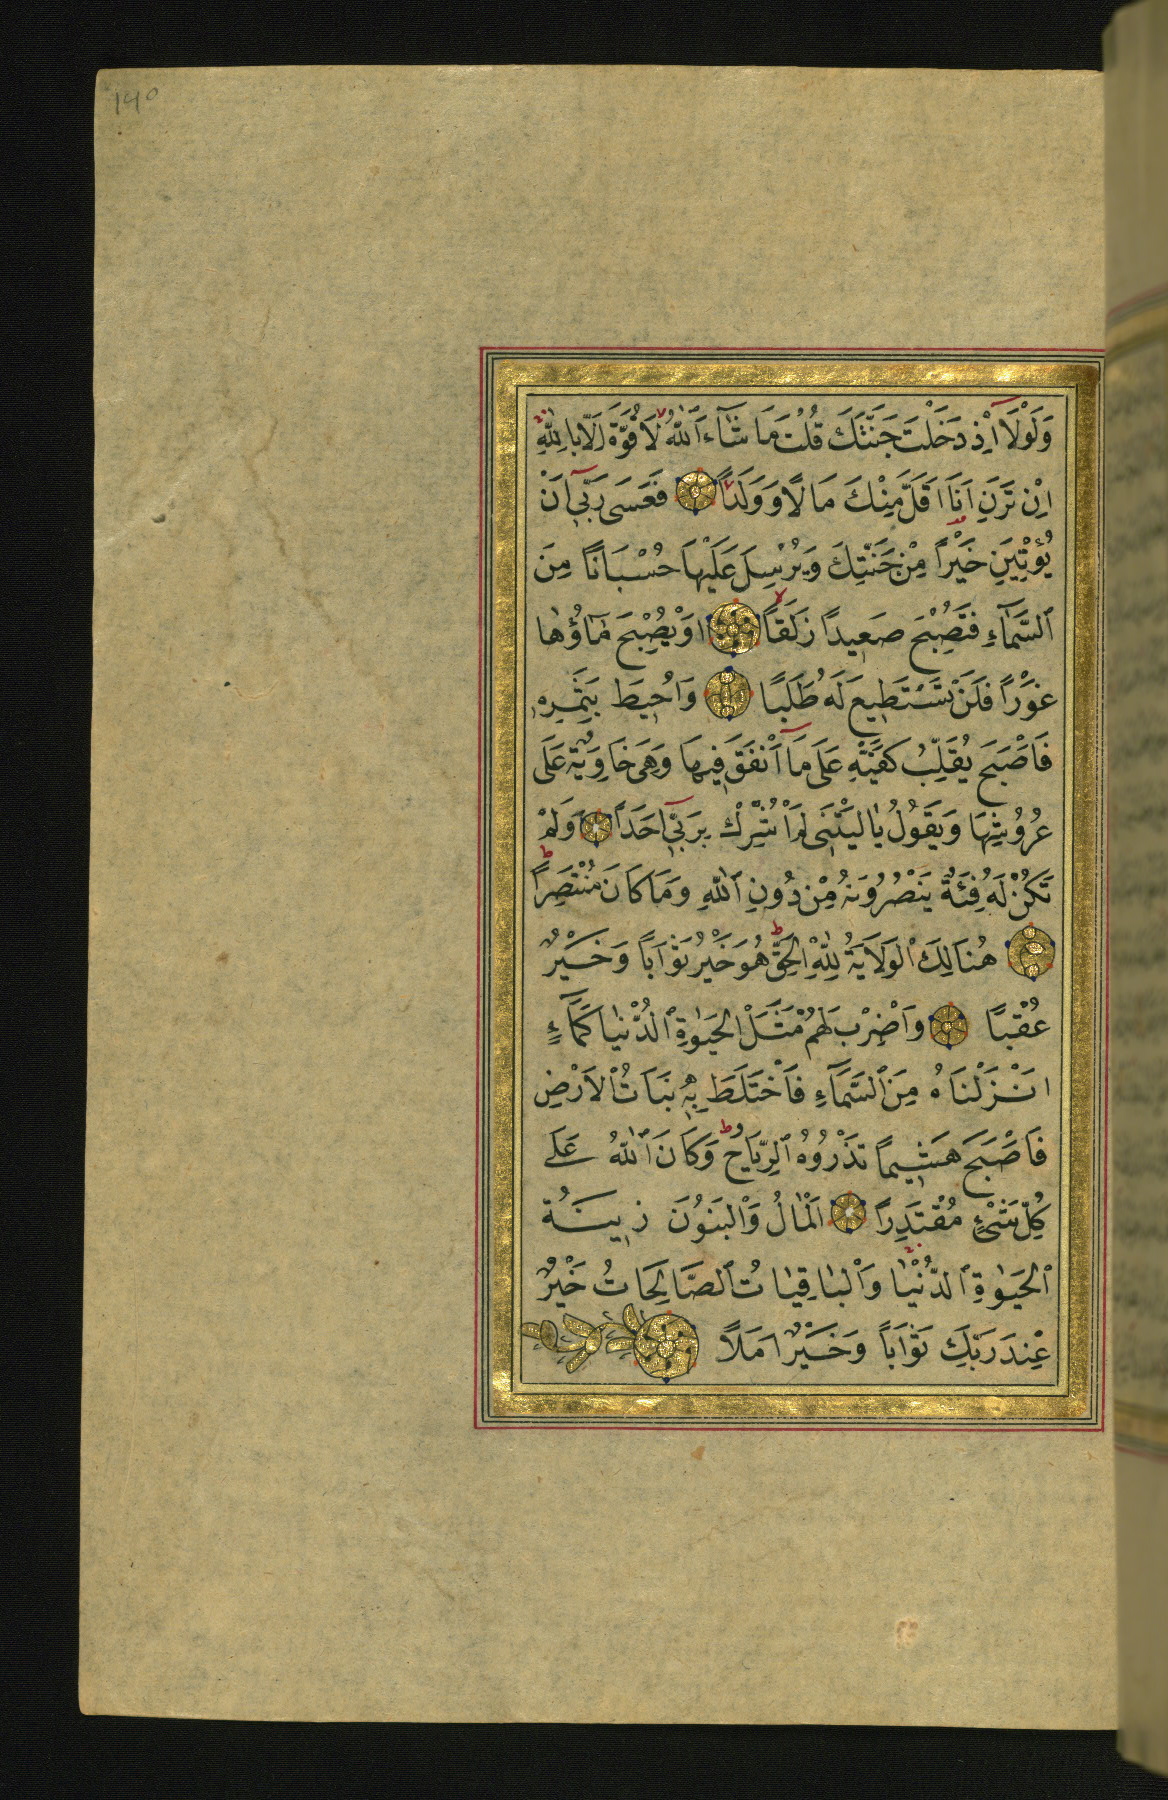 ١٩٥
وَلَوْلَا اِذْ دَخَلْتَ جَنَّتَكَ قُلْتَ مَا شَٓاءَ ٱللّٰهُ لَا قُوَّةَ اِلَّا بِاللّٰهِ
اِنْ تَرَنِ اَنَا۬ اَقَلَّ مِنْكَ مَالًا وَوَلَدًا فَعَسٰى رَبّ۪ٓى اَنْ
يُؤْتِيَنِ خَيْرًا مِنْ جَنَّتِكَ وَيُرْسِلَ عَلَيْهَا حُسْبَانًا مِنَ
ٱلسَّمَٓاءِ فَتُصْبِحَ صَع۪يدًا زَلَقًا اَوْ يُصْبِحَ مَٓاؤُهَا
غَوْرًا فَلَنْ تَسْتَط۪يعَ لَهُ طَلَبًا وَاُح۪يطَ بِثَمَرِه۪
فَاَصْبَحَ يُقَلِّبُ كَفَّيْهِ عَلٰى مَٓا اَنْفَقَ ف۪يهَا وَهِىَ خَاوِيَةٌ عَلٰى
عُرُوشِهَا وَيَقُولُ يَا لَيْتَن۪ى لَمْ اُشْرِكْ بِرَبّ۪ٓى اَحَدًا وَلَمْ
تَكُنْ لَهُ فِئَةٌ يَنْصُرُونَهُ مِنْ دُونِ ٱللّٰهِ وَمَا كَانَ مُنْتَصِرًا
هُنَالِكَ ٱلْوَلَايَةُ لِلّٰهِ ٱلْحَقِّ هُوَ خَيْرٌ ثَوَابًا وَخَيْرٌ
عُقْبًا وَاضْرِبْ لَهُمْ مَثَلَ ٱلْحَيٰوةِ ٱلدُّنْيَا كَمَٓاءٍ
اَنْزَلْنَاهُ مِنَ ٱلسَّمَٓاءِ فَاخْتَلَطَ بِه۪ نَبَاتُ ٱلْاَرْضِ
فَاَصْبَحَ هَش۪يمًا تَذْرُوهُ ٱلرِّيَاحُ وَكَانَ ٱللّٰهُ عَلٰى
كُلِّ شَىْءٍ مُقْتَدِرًا اَلْمَالُ وَالْبَنُونَ ز۪ينَةُ
ٱلْحَيٰوةِ ٱلدُّنْيَا وَٱلْبَاقِيَاتُ ٱلصَّالِحَاتُ خَيْرٌ
عِنْدَ رَبِّكَ ثَوَابًا وَخَيْرٌ اَمَلًا